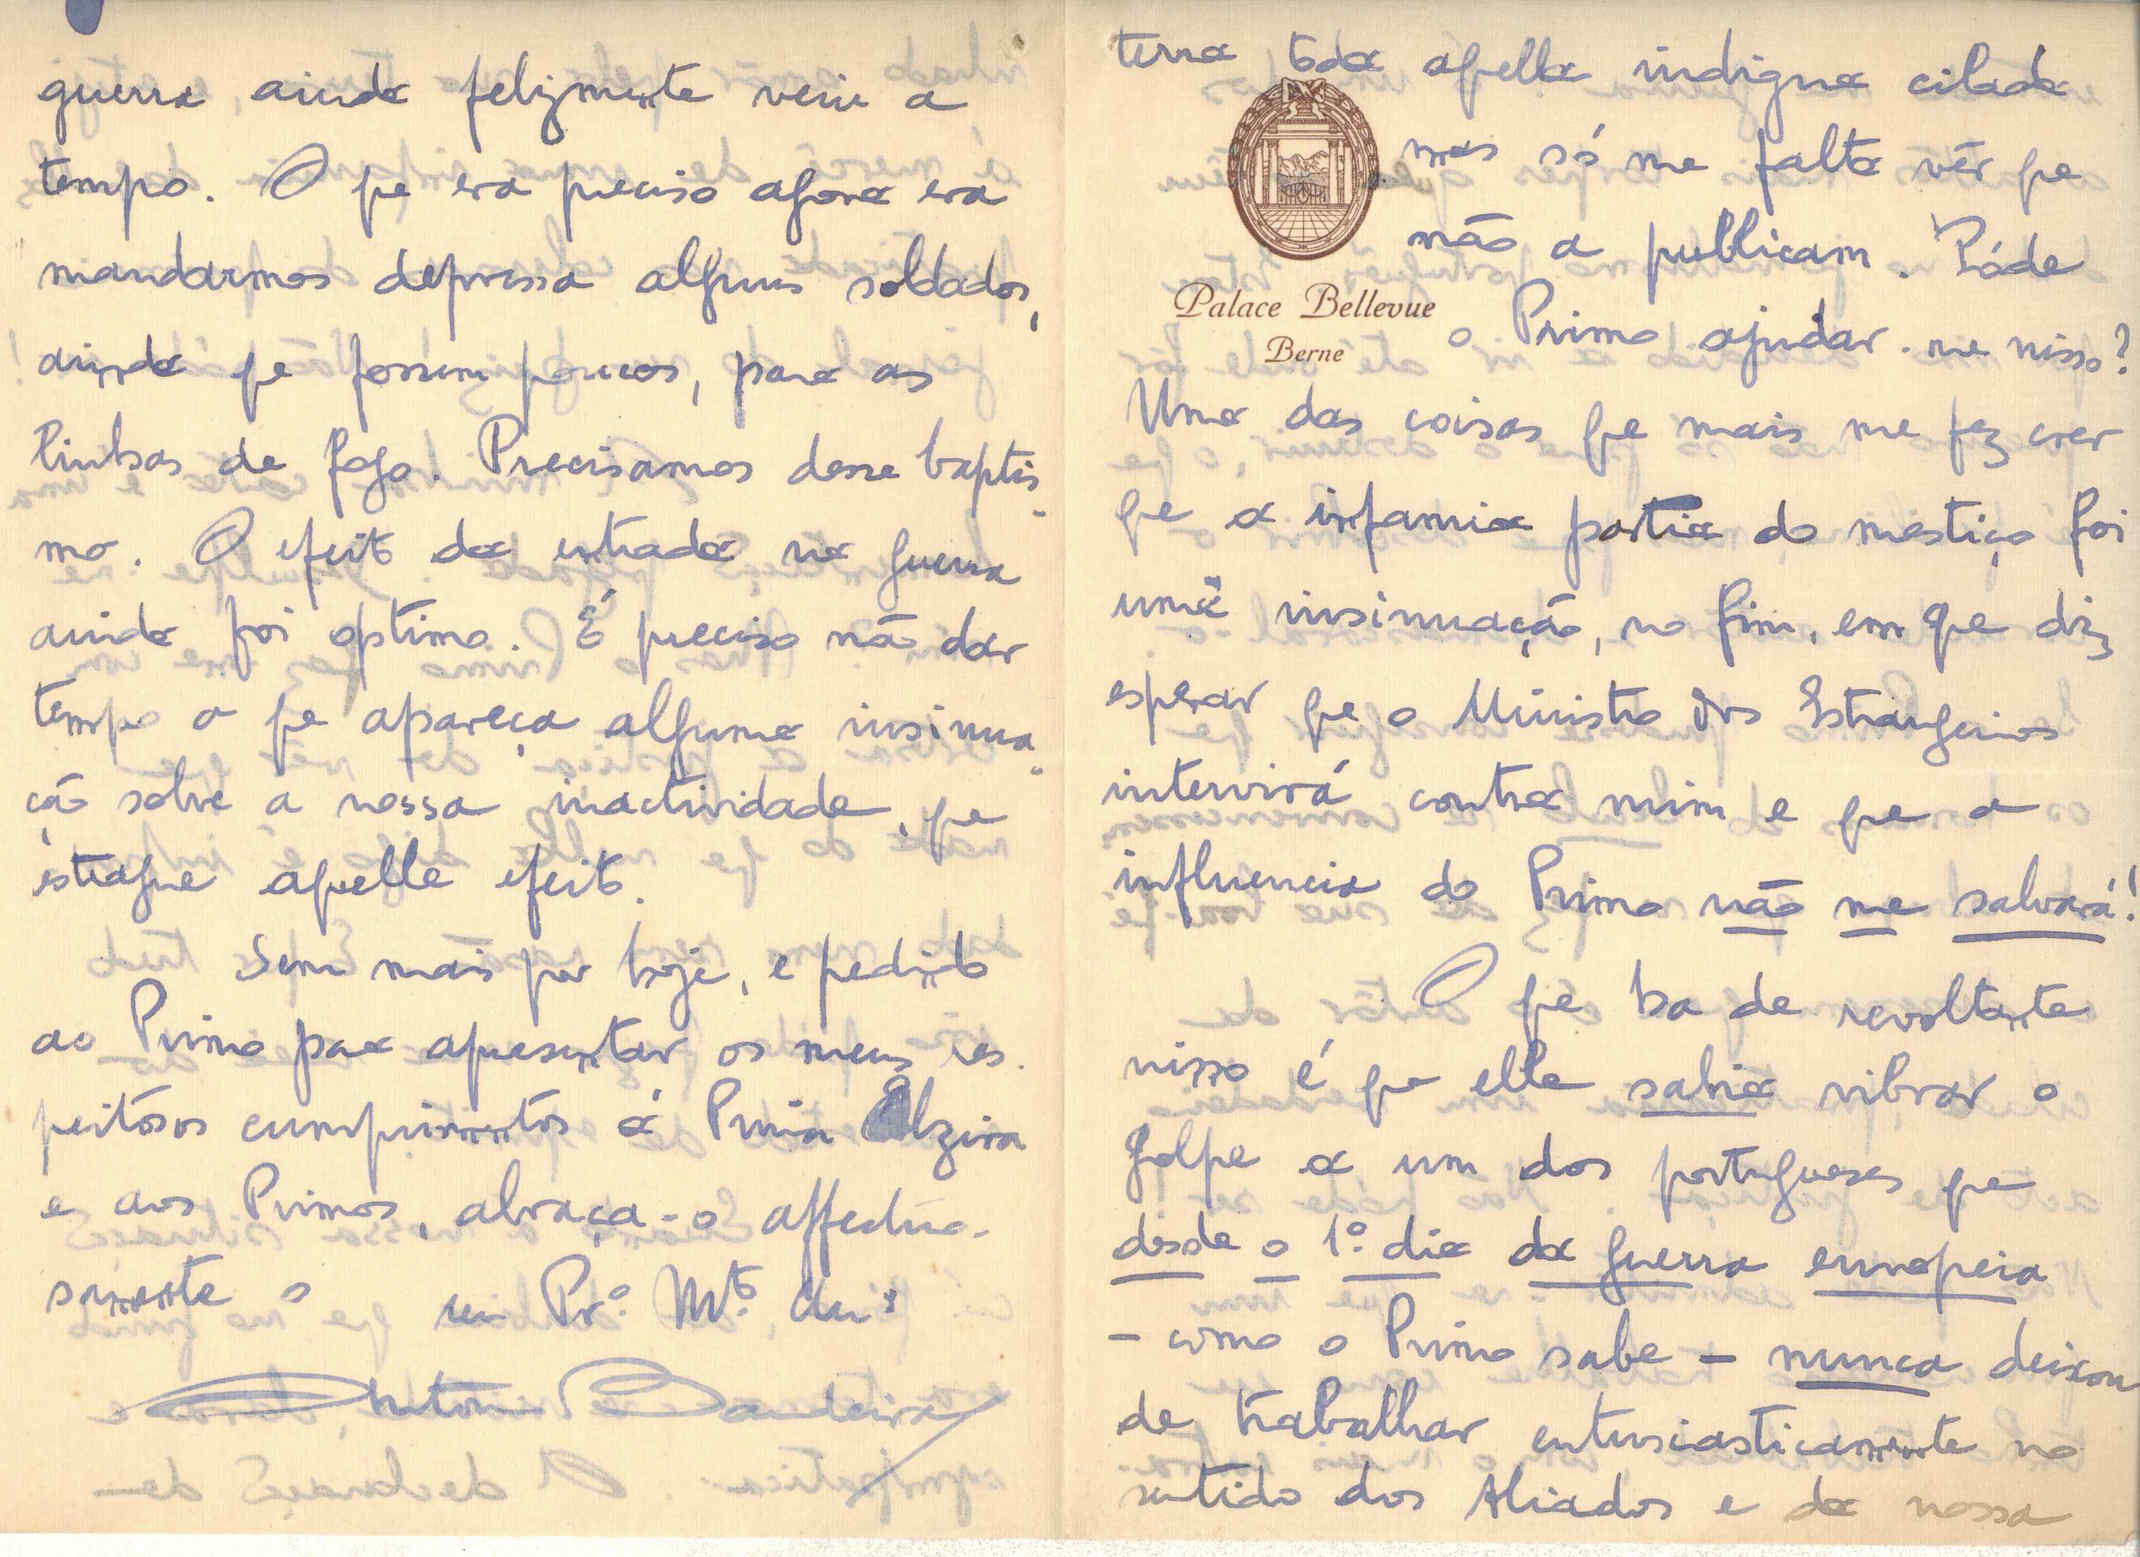 guerra ainda felizmente veiu a
tempo. O que era preciso agora era
mandarmos depressa alguns soldados,
ainda que fossem poucos, para as
linhas de fogo. Precisamos desse baptis-
mo. O efeito da entrada na guerra
ainda foi optimo. É preciso não dar
tempo a que apareça alguma insinua-
ção sobre a nossa inactividade, que
estrague aquelle efeito.
Sem mais por hoje, e pedindo
ao Primo para apresentar os meus res-
peitosos cumprimentos á Prima Alzira
e aos Primos, abraça-o affectuo-
samente o seu Pr.º M.to Am.º
Antonio Bandeira
terra toda aquella indigna cilada
mas só me falta vêr que
não a publicam. Póde
Palace Bellevue
Berne
o Primo ajudar-me nisso?
Uma das coisas que mais me fez crer
que a infamia partia do mestiço foi
uma insinuação, no fim, em que diz
esperar que o Ministro dos Estrangeiros
intervirá contra mim e que a
influencia do Primo não me salvará!
O que ha de revoltante
nisso é que elle sabia vibrar o
golpe a um dos portugueses que
desde o 1.º dia da guerra europeia
- como o Primo sabe - nunca deixou
de trabalhar entusiasticamente no
sentido dos Aliados e da nossa